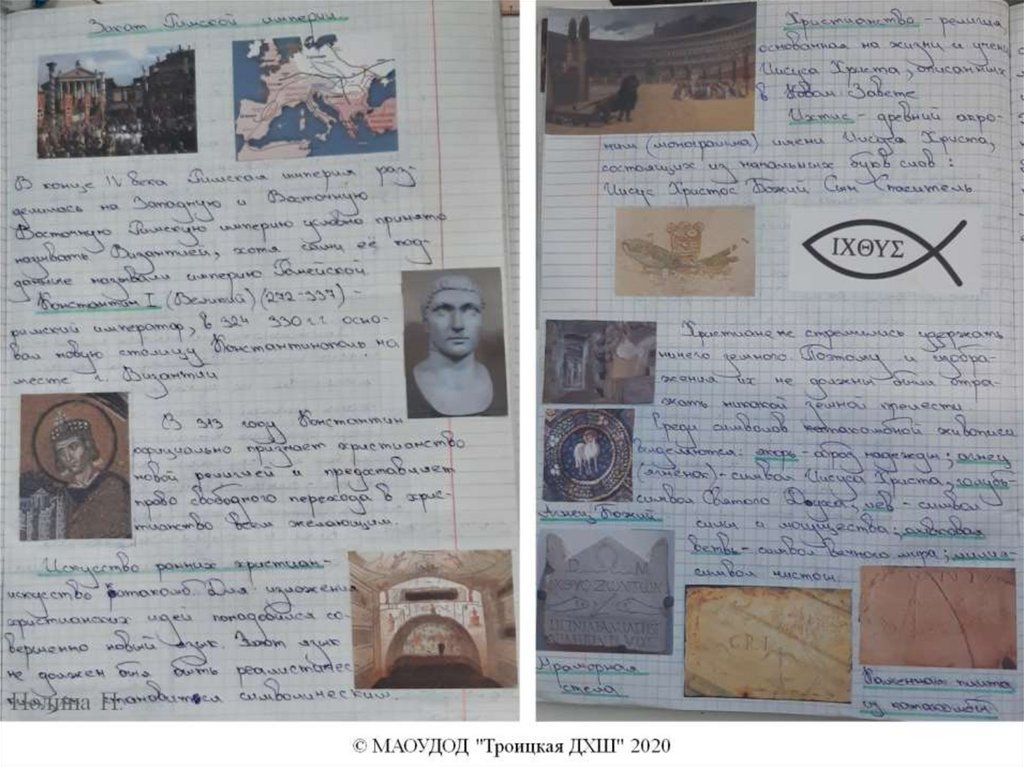 Закат Римской империи
В конце IV века Римская империя раз-
делилась на Западную и Восточную
Восточную Римскую империю условно принято
называть Византией, хотя сами её под-
данные называли империю Ромейской.
Константин I (Великий) (272-337) -
римский император, в 324 330 г.г осно-
вал новую столицу Константинополь на
месте г. Византий
В 313 году Константин
официально признает христианство
новой религией и предоставляет
право свободного перехода в хрис-
тианство всем желающим.
Искусство ранних христиан-
искусство катакомб. Для изложения
христианских идей понадобился со-
верменно новый язык. Этот язык
не должен был быть реалистичес-
становится символическим.
Полина Н.
Христианство - религия
основанная на жизни и учен
Иисуса Христа, описанных
в Новом Завете
Ихтис - древний акро-
ним (монограмма) имени Иисуса Христа,
состоящих из начальных букв слов:
Иисус Христос Божий Сын Спаситель
ΙΧΘΥΣ
Христиане не стремились удержать
ничего земного. Поэтому и изобра-
жения их не должны были отра-
жать никакой земной прелести
Среди символов катакомбной живописи
выделяются: якорь - образ надежды; агнец
(ягнёнок) - символ Иисуса Христа, голубь-
символ Святого Духа, лев - символ
Агнец Божий
силы и могущества; оливковая
ветвь - символ вечного мира; лилия-
символ чистоы
D M
ΙΧΘΥC ΖΩΝΤΩΝ
Мраморная
стела
Каменная плита
из катакомбы
© МАОУДОД "Троицкая ДХШ" 2020